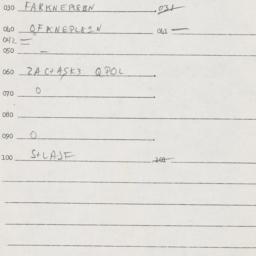 030 FARKNEPSEBN 031
040 QFKNEPLEIN 041 —
042 =
050 —
060 ZACHASK3 QPOL
070 O
080
090 O
100 S+LAJF 101